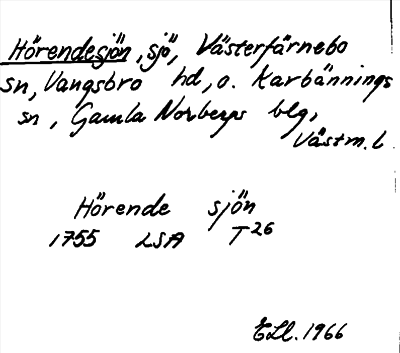 Hörendesjön, sjö, Västerfärnebo
sn, Vangsbro hd, o. Karbännings
sn, Gamla Norbergs blg,
Västm. l.
Hörende sjön
1755 LSA T26
ELl. 1966